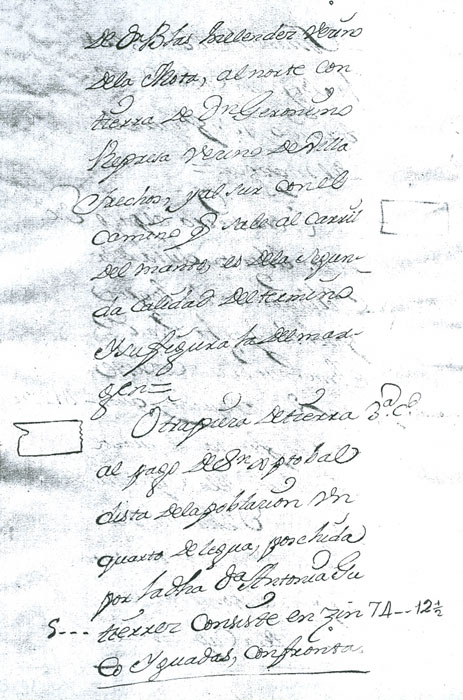 de Dn Blas Melendez vezino
dela Mota, al norte con
tierra de Dn Geronimo
Represa vezino de Villa
frechos, y al sur con el
camino q sale al Carril
del manto, es dela segun-
da calidad del termino
y su figura la del mar-
gen=
Otra pieza de tierra 3a. Cd
al pago de Sn xptobal
dista dela poblazion vn
quarto de legua, posehida
por la dha Da Antonia Gu
tierrez Consiste en zin 74--12½
5---
co Yguadas, confronta